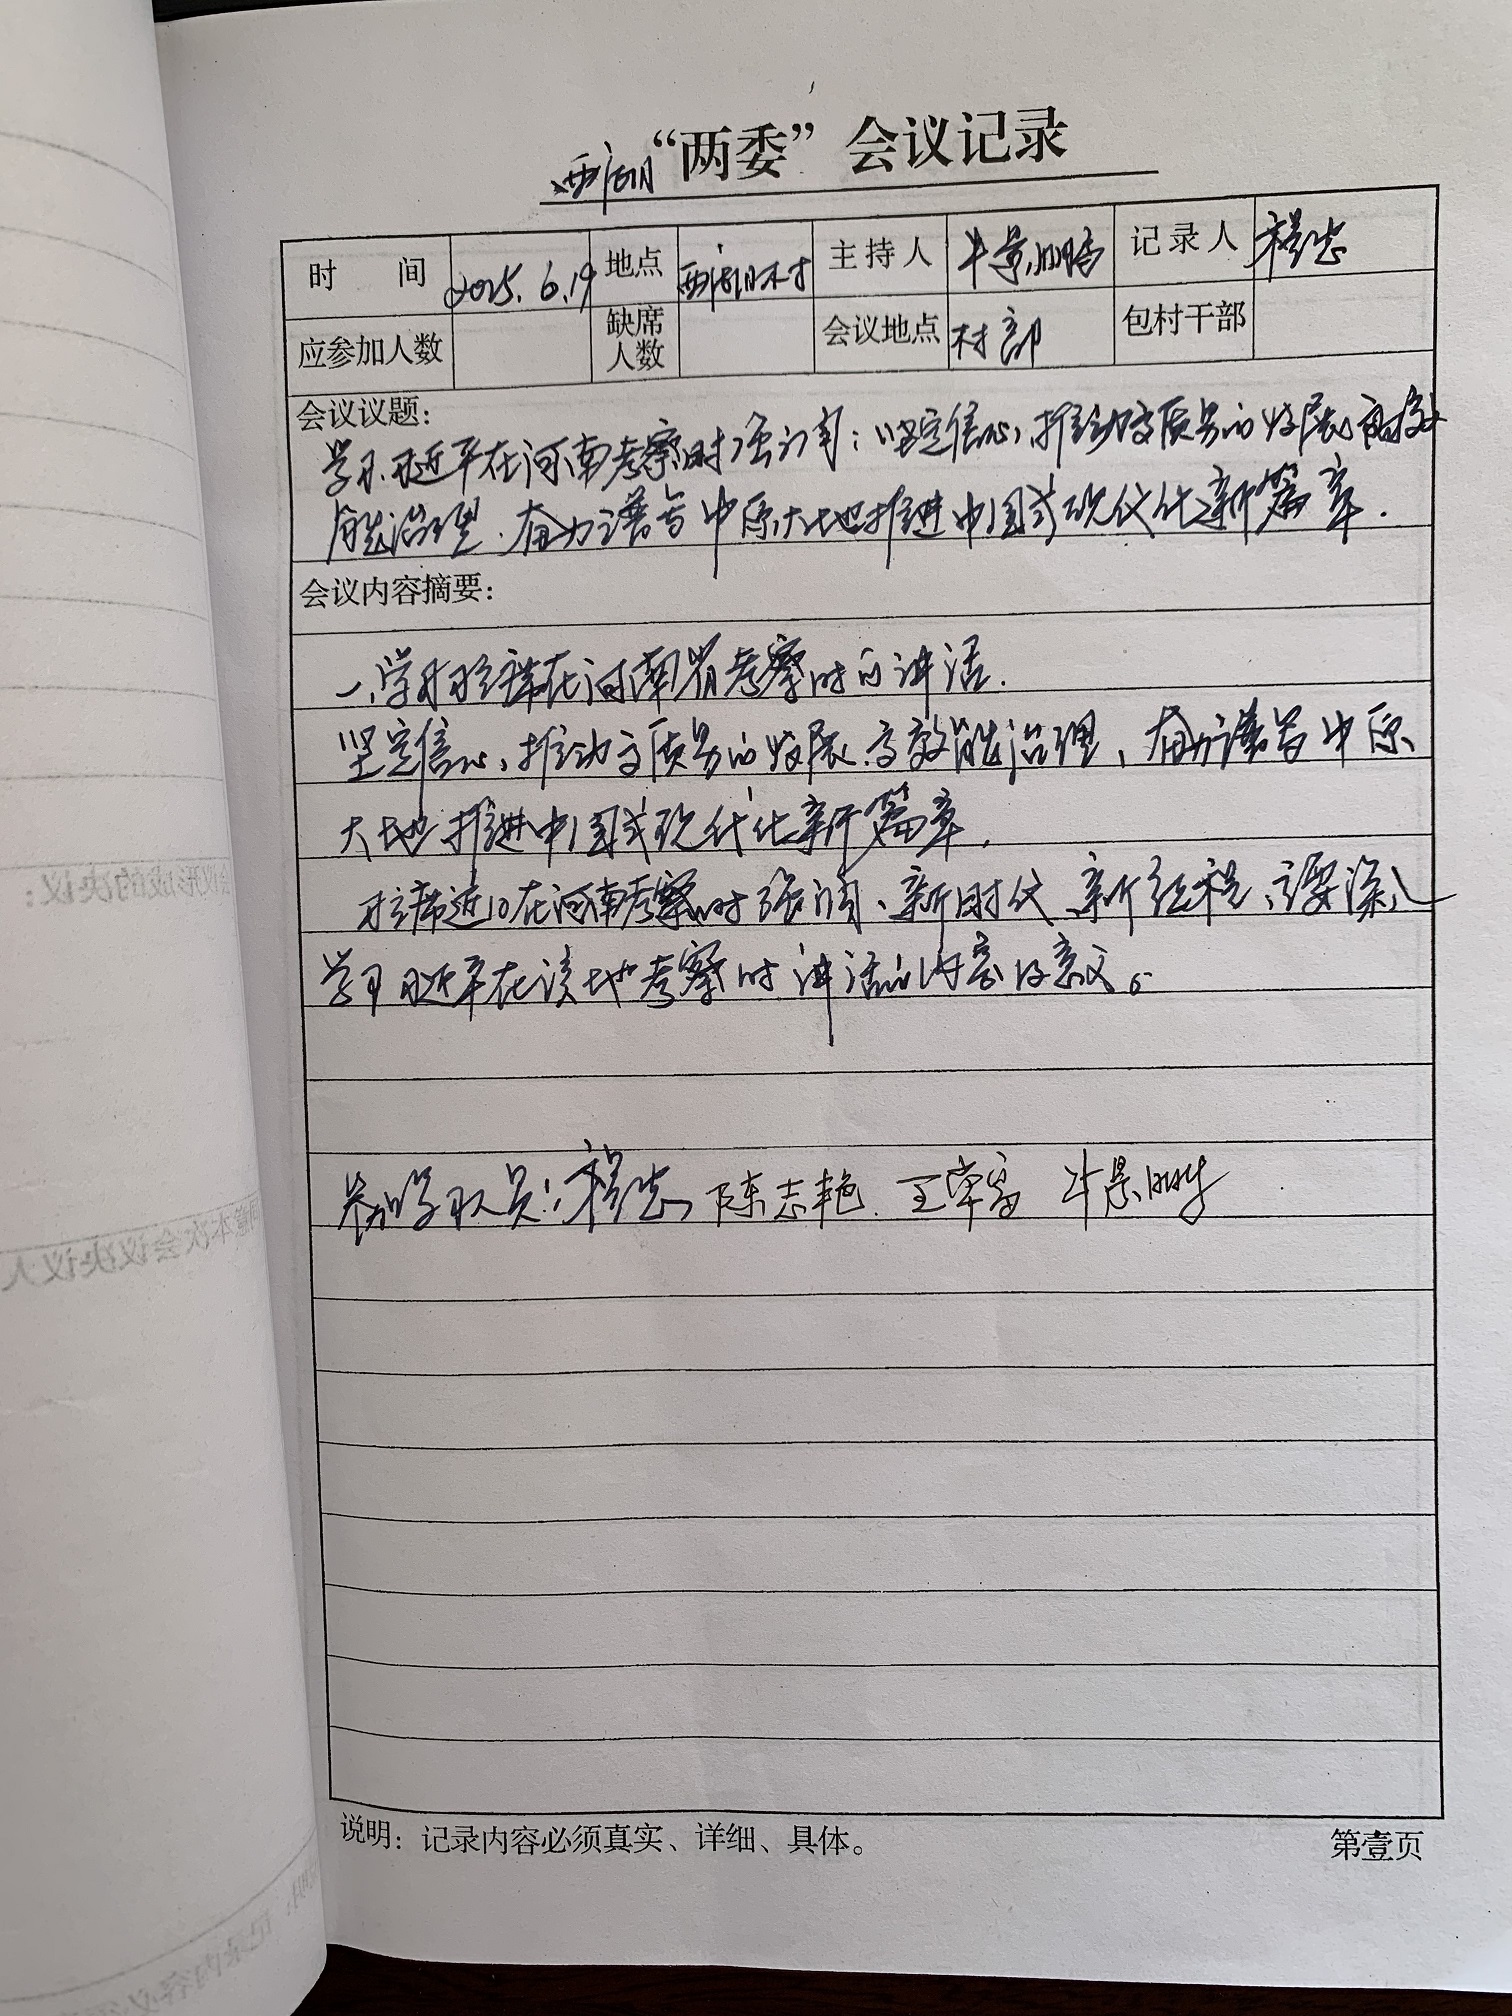 “两委”会议记录
时 间 2025.6.19 地点 西 村 主持人 牛景 记录人 程志
应参加人数 缺席人数 会议地点 村部 包村干部
会议议题:
学习习近平在河南考察时强调:坚定信心,推动高质量的发展高效
能治理.奋力谱写中原大地推进中国式现代化新篇章.
会议内容摘要:
一、学习习主席在河南省考察时的讲话.
坚定信心、推动高质量的发展.高效能治理、奋力谱写中原
大地推进中国式现代化新篇章.
习主席近日在河南考察时强调、新时代、新征程、要深入
学习习近平在该地考察时讲话的内容及意义。
参加学习人员:程志 陈志艳. 王 牛景
说明:记录内容必须真实、详细、具体。
第壹页
会议形成的决议:
本次会议决议人